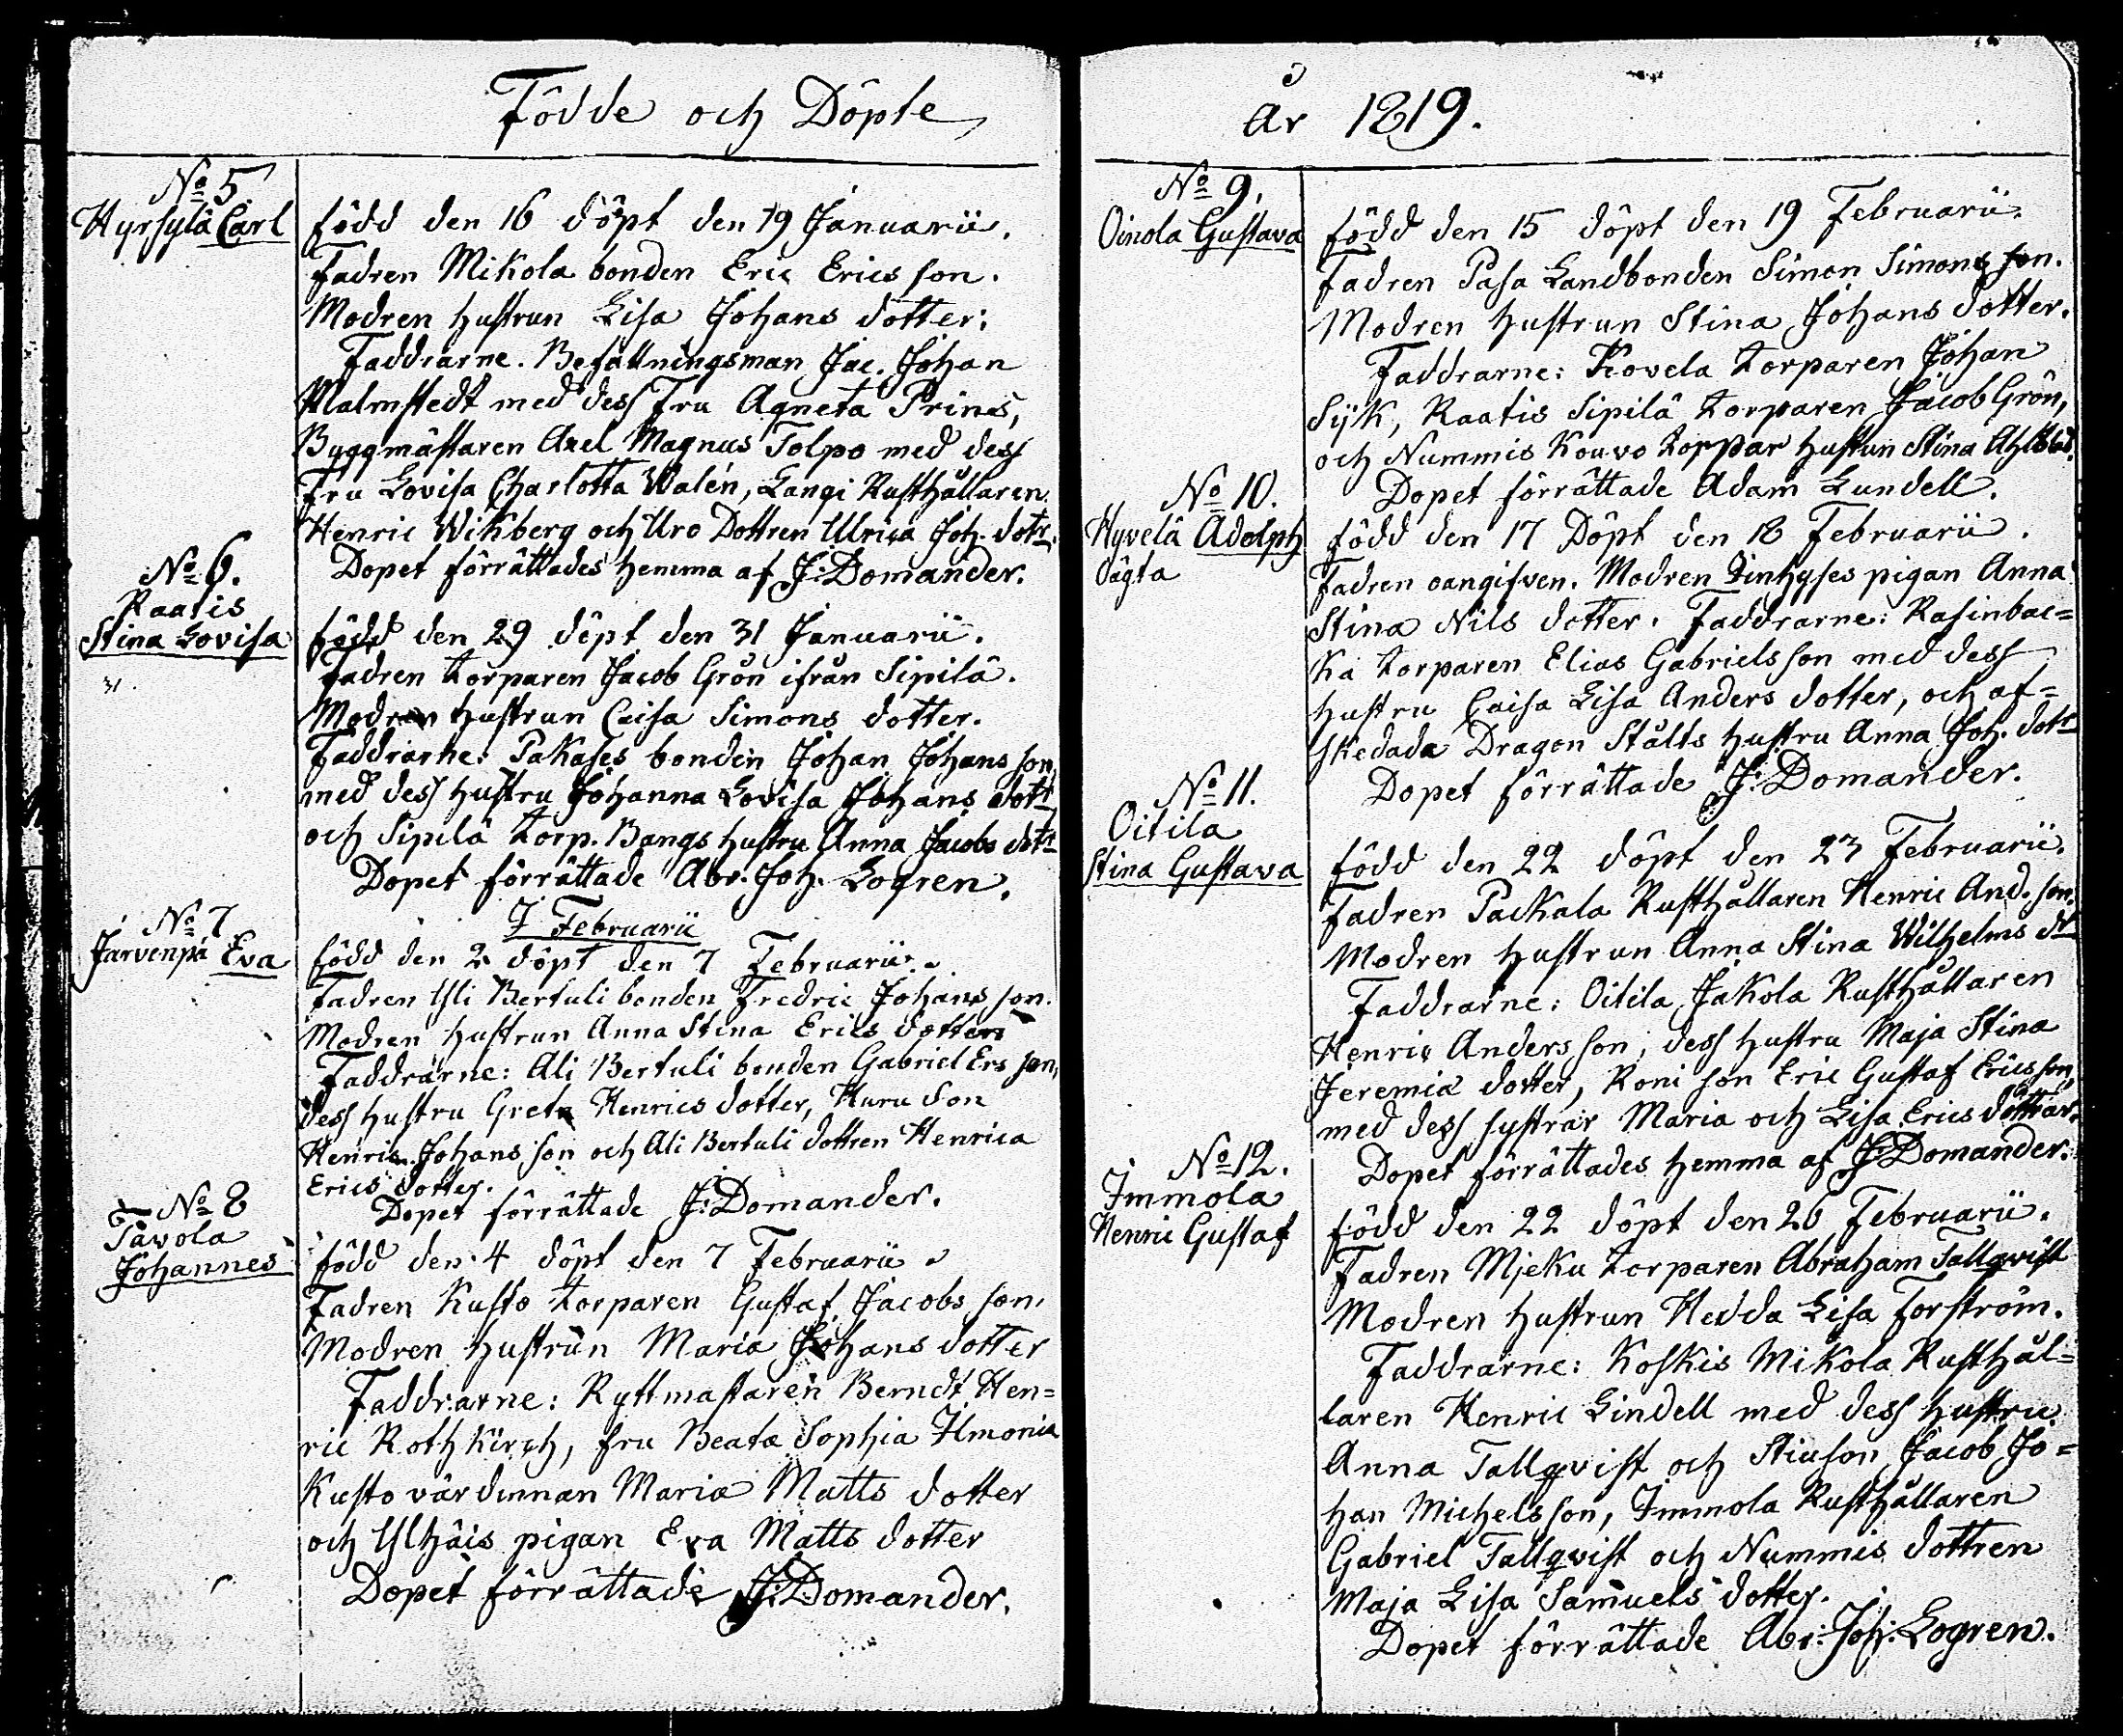 Födde och Döpte
No 5
Hyrsylä Carl
född den 16 döpt den 19 Januarii.
Fadren Mikola bonden Eric Ericsson.
Modren hustrun Lisa Johans dotter.
Faddrarne. Befallningsman Jac. Johan
Malmstedt med dess Fru Agneta Prines,
Byggmästaren Axel Magnus Tolpo med dess
Fru Lovisa Charlotta Walén, Langi Rusthållaren
Henric Wikberg och Uro Dottren Ulrica Joh. dotr.
Dopet förrättades hemma af J: Domander.
No 6.
Raatis
Stina Lovisa
31.
född den 29 döpt den 31 Januarii.
Fadren torparen Jacob Grön ifrån Sipilä.
Modren hustrun Caisa Simons dotter.
Faddrarne: Pakases bonden Johan Johansson,
med dess hustru Johanna Lovisa Johans dotr
och Sipilä torp. Bangs hustru Anna Jacobs dotr
Dopet förrättade Abr. Joh. Logren.
No 7
Järvenpä Eva
I Februarii
född den 2 döpt den 7 Februarii.
Fadren Yli Bertuli bonden Fredric Johansson.
Modren hustrun Anna Stina Erics dotter
Faddrarne: Ali Bertuli bonden Gabriel Ersson,
dess hustru Greta Henrics dotter, Huru Son
Henric Johansson och Ali Bertuli dottren Henrica
Erics dotter.
Dopet förrättade J: Domander.
No 8
Tavola
Johannes
född den 4 döpt den 7 Februarii.
Fadren Kusto torparen Gustaf Jacobsson.
Modren hustrun Maria Johans dotter
Faddrarne: Ryttmästaren Berndt Hen=
ric Rothkirch, fru Beata Sophia Ilmonia
Kusto värdinnan Maria Matts dotter
och Ylhäis pigan Eva Matts dotter
Dopet förrättade J: Domander.
År 1819.
No 9.
Oinola Gustava
född den 15 döpt den 19 Februarii.
Fadren Pasa Landbonden Simon Simonsson.
Modren hustrun Stina Johans dotter.
Faddrarne: Kovela torparen Johan
Sijk, Raatis Sipilä torparen Jacob Grön,
och Nummis Kouvo torpar hustrun Stina Ahlblad.
Dopet förrättade Adam Lundell.
No 10.
Hyvelä Adolph
oägta
född den 17 Döpt den 18 Februarii.
Fadren oangifven. Modren Inhyses pigan Anna
Stina Nils dotter. Faddrarne: Rasinbac=
ka torparen Elias Gabrielsson med dess
hustru Caisa Lisa Anders dotter, och af=
skedada Dragon Stålts hustru Anna Joh. dotr
Dopet förrättade J: Domander.
No 11.
Oitila
Stina Gustava
född den 22 döpt den 23 Februarii.
Fadren Packala Rusthållaren Henric And. son.
Modren hustrun Anna Stina Wilhelms dr
Faddrarne: Oitila Jakola Rusthållaren
Henric Andersson, dess hustru Maja Stina
Jeremiæ dotter, Roni son Eric Gustaf Ericsson,
med dess systrar Maria och Lisa Erics döttrar.
Dopet förrättades hemma af J: Domander.
No 12.
Immola
Henric Gustaf
född den 22 döpt den 26 Februarii.
Fadren Mjeku torparen Abraham Tallqvist
Modren hustrun Hedda Lisa Forström.
Faddrarne: Koskis Mikola Rusthål=
laren Henric Lindell med dess hustru
Anna Tallqvist och Stiuson Jacob Jo=
han Michelsson, Immola Rusthållaren
Gabriel Tallqvist och Nummis dottren
Maja Lisa Samuels dotter.
Dopet förrättade Abr: Joh: Logren.